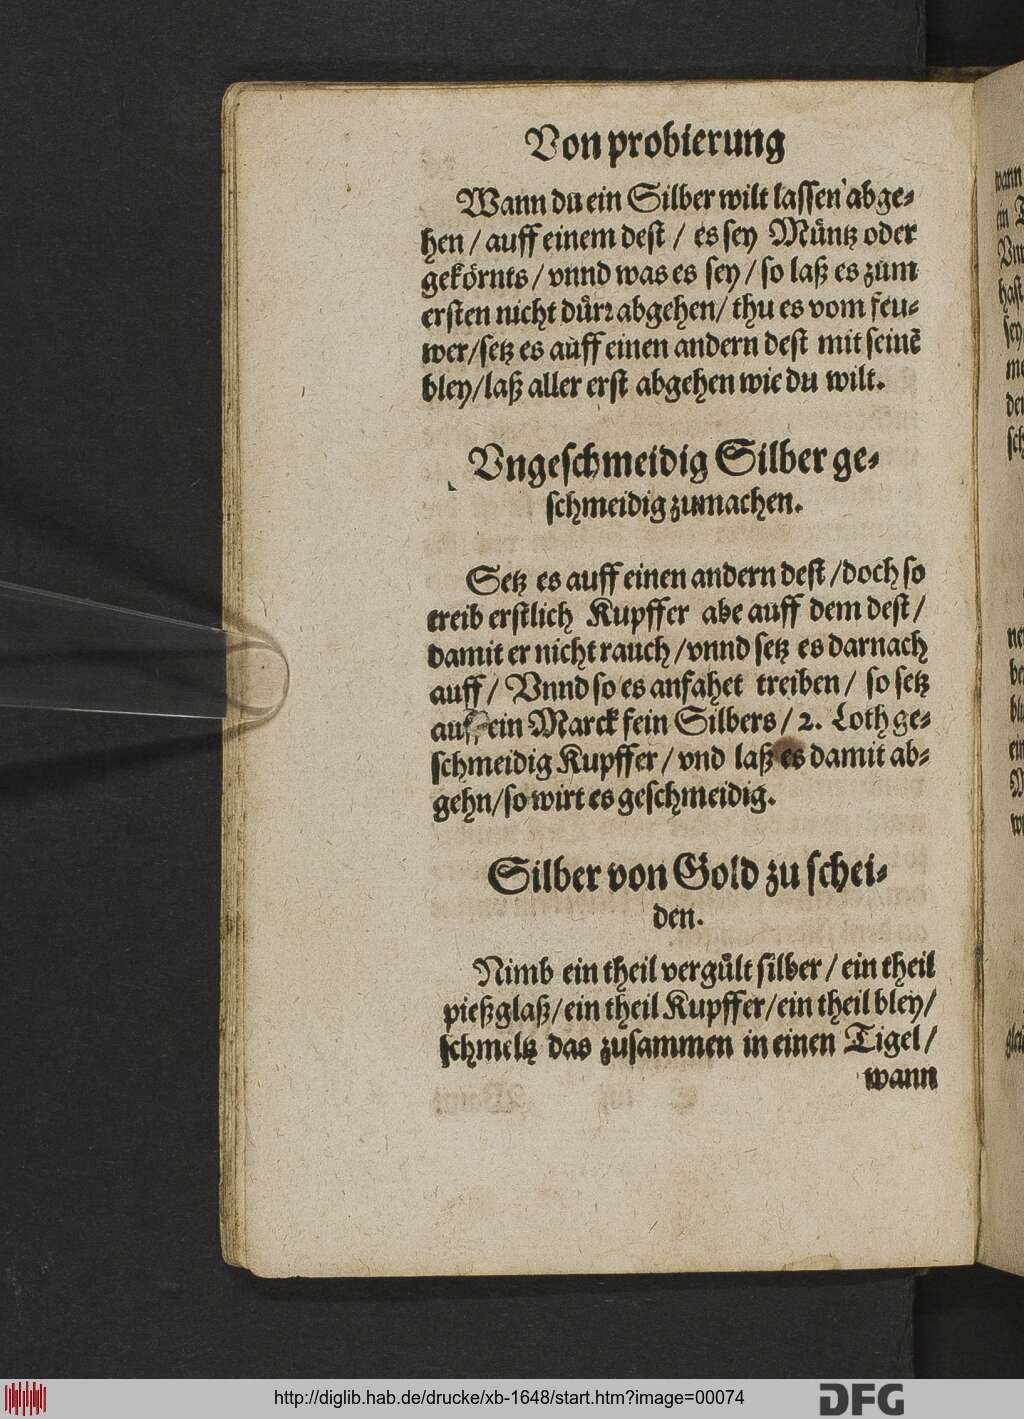 Von probierung
Wann du ein Silber wilt lassen abge-
hen / auff einem dest / es sey Müntz oder
gekörnts / vnnd was es sey / so laß es zum
ersten nicht dürꝛ abgehen / thu es vom feu-
wer / setz es auff einen andern dest mit seinē
bley / laß aller erst abgehen wie du wilt.
Vngeschmeidig Silber ge-
schmeidig zumachen.
Setz es auff einen andern dest / doch so
treib erstlich Kupffer abe auff dem dest /
damit er nicht rauch / vnnd setz es darnach
auff / Vnnd so es anfahet treiben / so setz
auff ein Marck fein Silbers / 2. Loth ge-
schmeidig Kupffer / vnd laß es damit ab-
gehn / so wirt es geschmeidig.
Silber von Gold zu schei-
den.
Nimb ein theil vergült silber / ein theil
pießglaß / ein theil Kupffer / ein theil bley /
schmeltz das zusammen in einen Tigel /
wann
wann
ein
hast
sey
http://diglib.hab.de/drucke/xb-1648/start.htm?image=00074
DFG